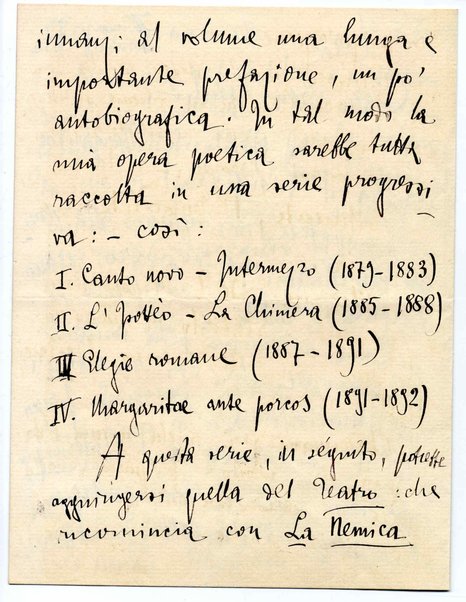 innanzi al volume una lunga e
importante prefazione, un po'
autobiografica. In tal modo la
mia opera poetica sarebbe tutta
raccolta in una serie progressi
va: – così:
I. Canto novo – Intermezzo (1879–1883)
II. L'Isottèo – La Chimera (1885–1888)
III Elegie romane (1887–1891)
IV. Margaritae ante porcos (1891–1892)
A questa serie, in séguito, potrebbe
aggiungersi quella del Teatro: che
incomincia con La Nemica